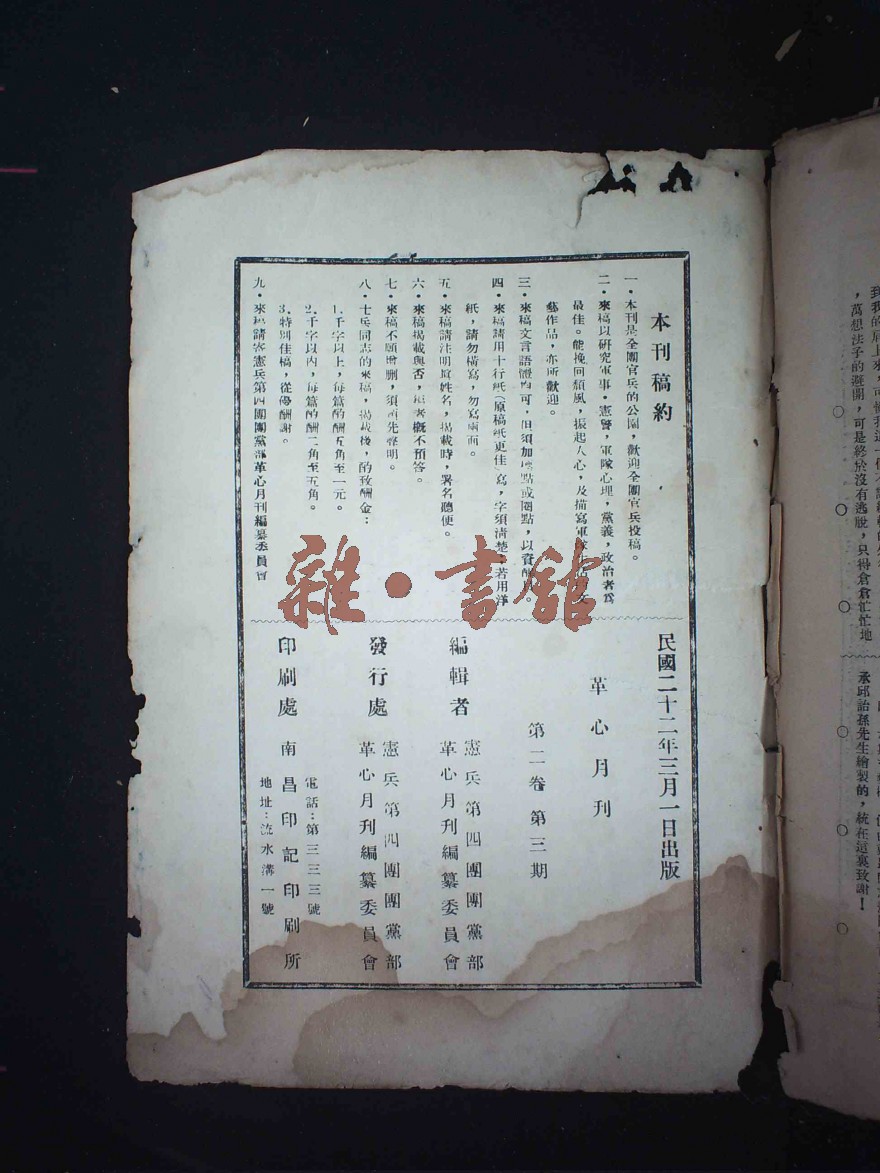 本刊稿約
一・本刊是全團官兵的公園，歡迎全團官兵投稿。
二・來稿以研究軍事・憲警，軍隊心理，黨義，政治者爲
最佳。能挽回頹風，振起人心，及描寫軍
藝作品，亦所歡迎。
三・來稿文言語體均可，但須加標點或圈點，以資醒目。
四・來稿請用十行紙（原稿紙更佳）寫，字須清楚；若用洋
紙，請勿橫寫，勿寫兩面。
五・來稿請注明眞姓名，揭載時，署名聽便。
六・來稿揭載與否，編者概不預答。
七・來稿不願增刪，須預先聲明。
八・士兵同志的來稿，揭載後，酌致酬金：
1.千字以上，每篇酌酬五角至一元。
2.千字以內，每篇酌酬二角至五角。
3.特別佳稿，從優酬謝。
九・來稿請寄憲兵第四團團黨部革心月刊編纂委員會
民國二十二年三月一日出版
革心月刊
第二卷 第三期
編輯者
憲兵第四團團黨部
革心月刊編纂委員會
發行處
憲兵第四團團黨部
革心月刊編纂委員會
印刷處
南昌印記印刷所
電話：第三三三號
地址：流水溝一號
雜・書館
，萬想法子的避開，可是終於沒有逃脫，只得倉倉忙忙地
承邱詒孫先生繪製的，統在這裏致謝！